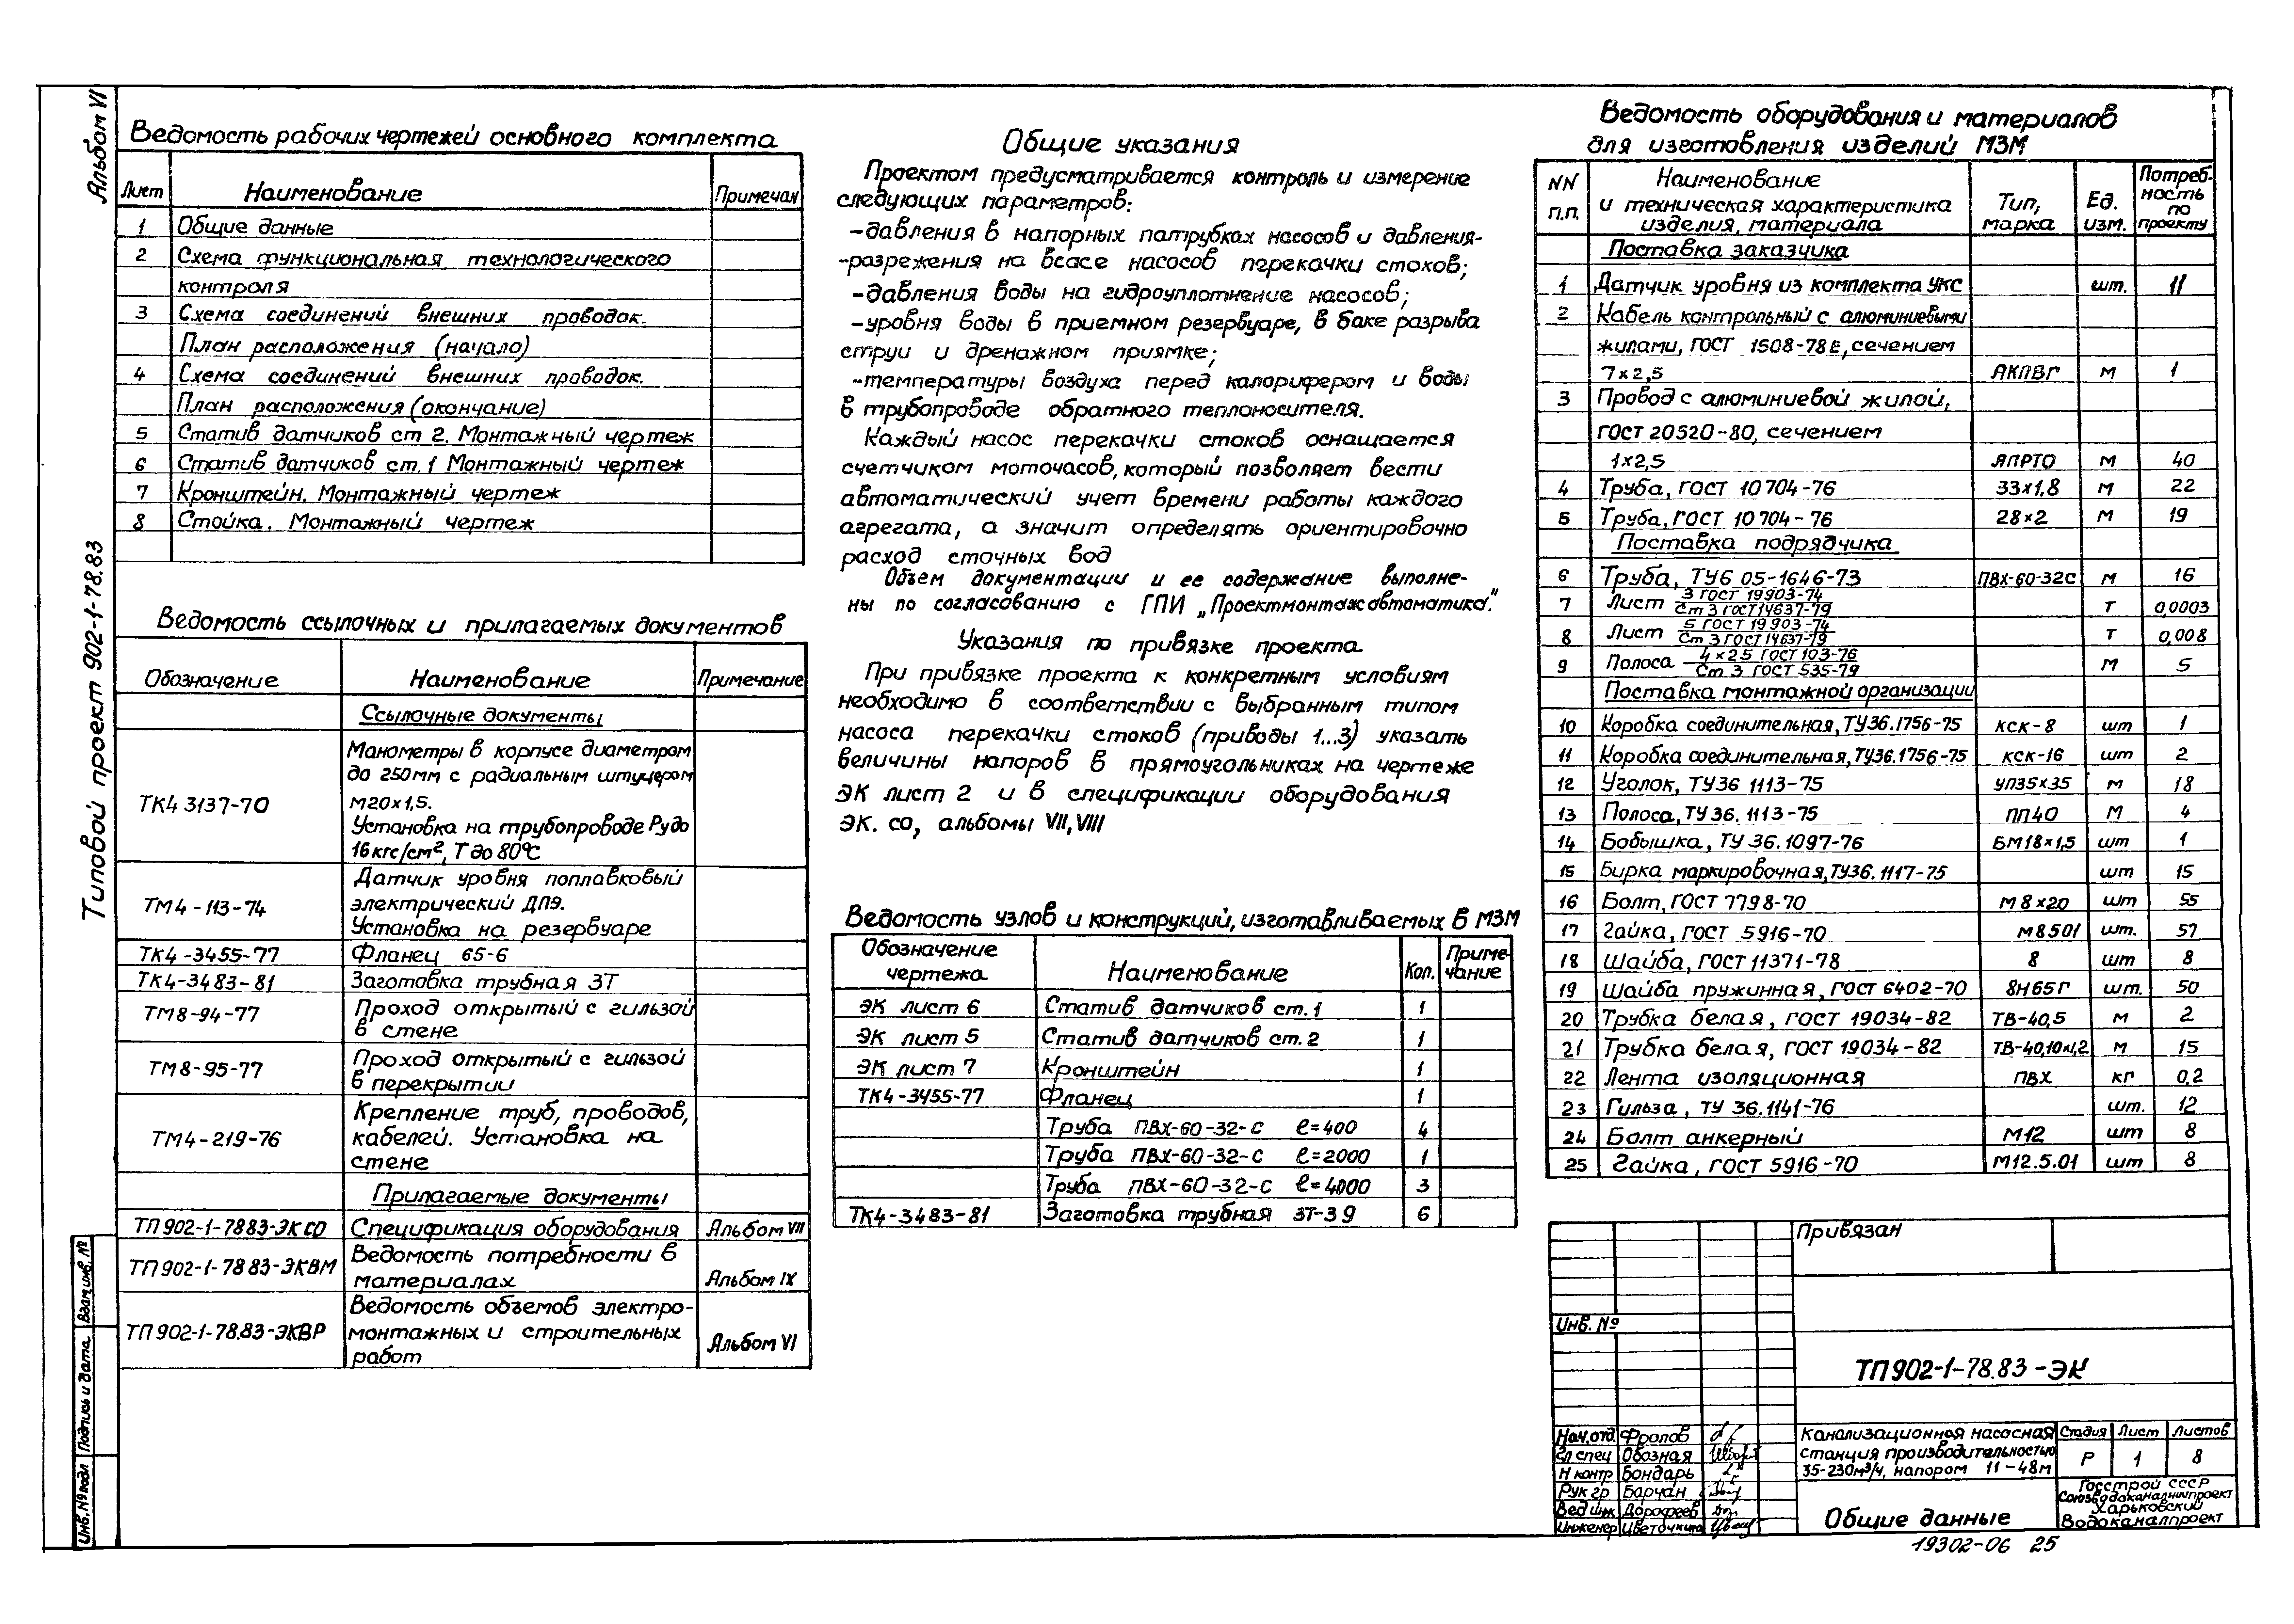 Альбом VI
Типовой проект 902-1-78.83
Взам.инв. №
Подпись и дата
Инв.№подл
Ведомость рабочих чертежей основного комплекта
Лист Наименование Примечан
1 Общие данные
2 Схема функциональная технологического
контроля
3 Схема соединений внешних проводок.
План расположения (начало)
4 Схема соединений внешних проводок.
План расположения (окончание)
5 Статив датчиков ст 2. Монтажный чертеж
6 Статив датчиков ст.1 Монтажный чертеж
7 Кронштейн. Монтажный чертеж
8 Стойка. Монтажный чертеж
Ведомость ссылочных и прилагаемых документов
Обозначение Наименование Примечание
Ссылочные документы
ТК4 3137-70 Манометры в корпусе диаметром
до 250мм с радиальным штуцером
М20х1,5.
Установка на трубопроводе Ру до
16 кгс/см², Т до 80°С
ТМ4-113-74 Датчик уровня поплавковый
электрический ДПЭ.
Установка на резервуаре
ТК4-3455-77 Фланец 65-6
ТК4-3483-81 Заготовка трубная ЗТ
ТМ8-94-77 Проход открытый с гильзой
в стене
ТМ8-95-77 Проход открытый с гильзой
в перекрытии
ТМ4-219-76 Крепление труб, проводов,
кабелей. Установка на
стене
Прилагаемые документы
ТП 902-1-78 83-ЭК СО Спецификация оборудования Альбом VII
ТП 902-1-78 83-ЭКВМ Ведомость потребности в
материалах Альбом IX
ТП 902-1-78.83-ЭКВР Ведомость объемов электро-
монтажных и строительных
работ Альбом VI
Общие указания
Проектом предусматривается контроль и измерение
следующих параметров:
-давления в напорных патрубках насосов и давления-
-разрежения на всасе насосов перекачки стоков;
-давления воды на гидроуплотнение насосов;
-уровня воды в приемном резервуаре, в баке разрыва
струи и дренажном приямке;
-температуры воздуха перед калорифером и воды
в трубопроводе обратного теплоносителя.
Каждый насос перекачки стоков оснащается
счетчиком моточасов, который позволяет вести
автоматический учет времени работы каждого
агрегата, а значит определять ориентировочно
расход сточных вод
Объем документации и ее содержание выполне-
ны по согласованию с ГПИ „Проектмонтажавтоматика".
Указания по привязке проекта
При привязке проекта к конкретным условиям
необходимо в соответствии с выбранным типом
насоса перекачки стоков (приводы 1...3) указать
величины напоров в прямоугольниках на чертеже
ЭК лист 2 и в спецификации оборудования
ЭК. СО, альбомы VII, VIII
Ведомость узлов и конструкций, изготавливаемых в МЗМ
Обозначение чертежа Наименование Кол. Приме-чание
ЭК лист 6 Статив датчиков ст.1 1
ЭК лист 5 Статив датчиков ст.2 1
ЭК лист 7 Кронштейн 1
ТК4-3455-77 Фланец 1
Труба ПВХ-60-32-С ℓ=400 4
Труба ПВХ-60-32-С ℓ=2000 1
Труба ПВХ-60-32-С ℓ=4000 3
ТК4-3483-81 Заготовка трубная ЗТ-39 6
Ведомость оборудования и материалов
для изготовления изделий МЗМ
NN п.п. Наименование и техническая характеристика изделия, материала Тип, марка Ед. изм. Потреб-ность по проекту
Поставка заказчика
1 Датчик уровня из комплекта УКС шт. 11
2 Кабель контрольный с алюминиевыми
жилами, ГОСТ 1508-78Е, сечением
7х2,5 АКПВГ м 1
3 Провод с алюминиевой жилой,
ГОСТ 20520-80, сечением
1х2,5 АПРТО м 40
4 Труба, ГОСТ 10704-76 33х1,8 м 22
5 Труба, ГОСТ 10704-76 28х2 м 19
Поставка подрядчика
6 Труба, ТУ6 05-1646-73 ПВХ-60-32С м 16
7 Лист 3 ГОСТ 19903-74 / Ст 3 ГОСТ14637-79 т 0,0003
8 Лист 5 ГОСТ 19903-74 / Ст 3 ГОСТ14637-79 т 0,008
9 Полоса 4х25 ГОСТ 103-76 / Ст 3 ГОСТ 535-79 м 5
Поставка монтажной организации
10 Коробка соединительная, ТУ36.1756-75 КСК-8 шт 1
11 Коробка соединительная, ТУ36.1756-75 КСК-16 шт 2
12 Уголок, ТУ36 1113-75 УП35х35 м 18
13 Полоса, ТУ 36. 1113-75 ПП40 м 4
14 Бобышка, ТУ 36.1097-76 БМ18х1,5 шт 1
15 Бирка маркировочная, ТУ36.1117-75 шт 15
16 Болт, ГОСТ 7798-70 М8х20 шт 55
17 Гайка, ГОСТ 5916-70 М8501 шт. 57
18 Шайба, ГОСТ 11371-78 8 шт 8
19 Шайба пружинная, ГОСТ 6402-70 8Н65Г шт. 50
20 Трубка белая, ГОСТ 19034-82 ТВ-40,5 м 2
21 Трубка белая, ГОСТ 19034-82 ТВ-40,10х1,2 м 15
22 Лента изоляционная ПВХ кг 0,2
23 Гильза, ТУ 36.1141-76 шт. 12
24 Болт анкерный М12 шт 8
25 Гайка, ГОСТ 5916-70 М12.5.01 шт 8
Привязан
Инв. №
ТП 902-1-78.83-ЭК
Нач.отд. Фролов
Гл спец Обозная
Н контр Бондарь
Рук гр Барчан
Вед инж Дорофеев
Инженер Цветочкина
Канализационная насосная
станция производительностью
35-230м³/ч, напором 11-48м
Стадия Лист Листов
Р 1 8
Общие данные
Госстрой СССР
Союзводоканалниипроект
Харьковский
Водоканалпроект
19302-06 25